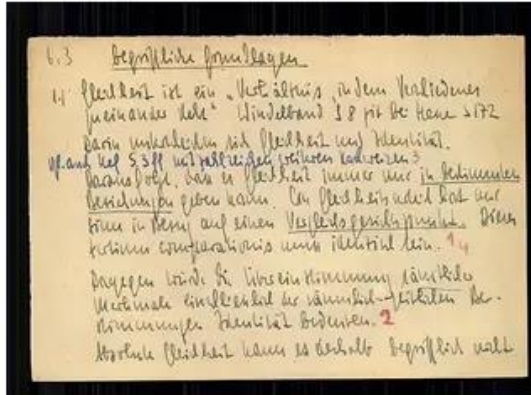 6.3 Begriffliche Grundlagen
1.) Gleichheit ist ein „Verhältnis, in dem Verschiedenes
zueinander steht" Windelband S 8 zit bei Haue S 172
Darin unterscheiden sich Gleichheit und Identität.
vgl. auch Nef S. 3 ff mit zahlreichen weiteren
Daraus folgt, dass es Gleichheit immer nur in bestimmten
Beziehungen geben kann. Ein Gleichheitsurteil hat nur
Sinn in Bezug auf einen Vergleichsgesichtspunkt. Dieses
tertium comparationis muss identisch sein. 1,4
Dagegen würde die Übereinstimmung sämtlicher
Merkmale einschliesslich der räumlich-zeitlichen Be-
stimmungen Identität bedeuten. 2
Absolute Gleichheit kann es deshalb begrifflich nicht